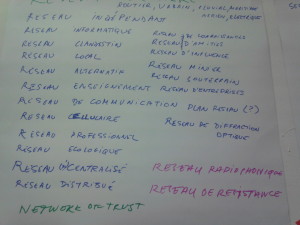 ROUTIER, URBAIN,
RESEAU INDÉPENDANT
RESEAU INFORMATIQUE
RESEAU DE CONNAISSANCES
RESEAU CLANDESTIN
RESEAU D'AMITIÉS
RESEAU LOCAL
RESEAU D'INFLUENCE
RESEAU ALTERNATIF
RESEAU MINIER
RESEAU SOUTERRAIN
RESEAU ENSEIGNEMENT
RESEAU D'ENTREPRISES
RESEAU DE COMMUNICATION
PLAN RESEAU (?)
RESEAU CELLULAIRE
RESEAU DE DIFFRACTION
OPTIQUE
RESEAU PROFESSIONNEL
RESEAU ECOLOGIQUE
RESEAU DÉCENTRALISÉ
RESEAU RADIOPHONIQUE
RESEAU DISTRIBUÉ
RESEAU DE RESISTANCE
NETWORK OF TRUST